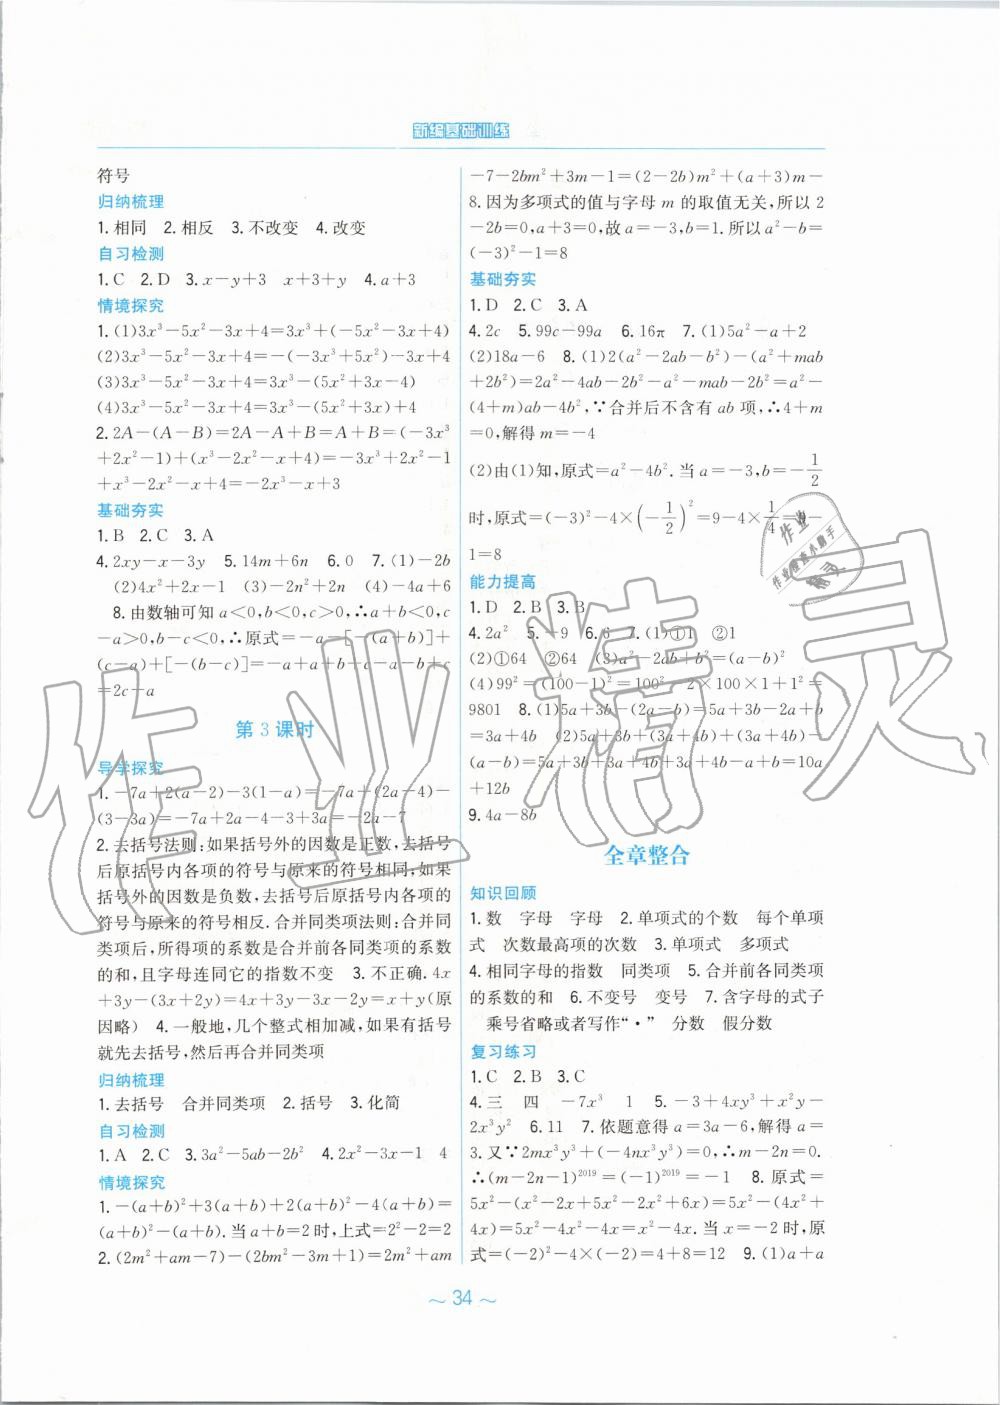 新编基础训练
符号
归纳梳理
1.相同 2.相反 3.不改变 4.改变
自习检测
1.C 2.D 3.x－y＋3 x＋3＋y 4.a＋3
情境探究
1.(1)3x³－5x²－3x＋4=3x³＋(－5x²－3x＋4)
(2)3x³－5x²－3x＋4=－(－3x³＋5x²)－3x＋4
(3)3x³－5x²－3x＋4=3x³－(5x²＋3x－4)
(4)3x³－5x²－3x＋4=3x³－(5x²＋3x)＋4
2.2A－(A－B)=2A－A＋B=A＋B=(－3x³
＋2x²－1)＋(x³－2x²－x＋4)=－3x³＋2x²－1
＋x³－2x²－x＋4=－2x³－x＋3
基础夯实
1.B 2.C 3.A
4.2xy－x－3y 5.14m＋6n 6.0 7.(1)－2b
(2)4x²＋2x－1 (3)－2n²＋2n (4)－4a＋6
8.由数轴可知 a＜0,b＜0,c＞0,∴a＋b＜0,c
－a＞0,b－c＜0,∴原式=－a－[－(a＋b)]＋
(c－a)＋[－(b－c)]=－a＋a＋b＋c－a－b＋c
=2c－a
第 3 课时
导学探究
1.－7a＋2(a－2)－3(1－a)=－7a＋(2a－4)－
(3－3a)=－7a＋2a－4－3＋3a=－2a－7
2.去括号法则:如果括号外的因数是正数,去括号
后原括号内各项的符号与原来的符号相同;如果
括号外的因数是负数,去括号后原括号内各项的
符号与原来的符号相反.合并同类项法则:合并同
类项后,所得项的系数是合并前各同类项的系数
的和,且字母连同它的指数不变 3.不正确.4x
＋3y－(3x＋2y)=4x＋3y－3x－2y=x＋y(原
因略) 4.一般地,几个整式相加减,如果有括号
就先去括号,然后再合并同类项
归纳梳理
1.去括号 合并同类项 2.括号 3.化简
自习检测
1.A 2.C 3.3a²－5ab－2b² 4.2x²－3x－1 4
情境探究
1.－(a＋b)²＋3(a＋b)＋2(a＋b)²－4(a＋b)=
(a＋b)²－(a＋b).当a＋b=2时,上式=2²－2=2
2.(2m²＋am－7)－(2bm²－3m＋1)=2m²＋am
－7－2bm²＋3m－1=(2－2b)m²＋(a＋3)m－
8.因为多项式的值与字母 m 的取值无关,所以 2
－2b=0,a＋3=0,故 a=－3,b=1.所以 a²－b=
(－3)²－1=8
基础夯实
1.D 2.C 3.A
4.2c 5.99c－99a 6.16π 7.(1)5a²－a＋2
(2)18a－6 8.(1)2(a²－2ab－b²)－(a²＋mab
＋2b²)=2a²－4ab－2b²－a²－mab－2b²=a²－
(4＋m)ab－4b²,∵合并后不含有 ab 项,∴4＋m
=0,解得 m=－4
(2)由(1)知,原式=a²－4b².当 a=－3,b=－1/2
时,原式=(－3)²－4×(－1/2)²=9－4×1/4=9－
1=8
能力提高
1.D 2.B 3.B
4.2a² 5.－9 6.6 7.(1)①1 ②1
(2)①64 ②64 (3)a²－2ab＋b²=(a－b)²
(4)99²=(100－1)²=100²－2×100×1＋1²=
9801 8.(1)5a＋3b－(2a－b)=5a＋3b－2a＋b
=3a＋4b (2)5a＋3b＋(3a＋4b)＋(3a＋4b)－
(a－b)=5a＋3b＋3a＋4b＋3a＋4b－a＋b=10a
＋12b
9.4a－8b
全章整合
知识回顾
1.数 字母 字母 2.单项式的个数 每个单项
式 次数最高项的次数 3.单项式 多项式
4.相同字母的指数 同类项 5.合并前各同类项
的系数的和 6.不变号 变号 7.含字母的式子
乘号省略或者写作“·” 分数 假分数
复习练习
1.C 2.B 3.C
4.三 四 －7x³ 1 5.－3＋4xy³＋x²y－
2x³y² 6.11 7.依题意得 a=3a－6,解得 a=
3.又∵2mx³y³＋(－4nx³y³)=0,∴m－2n=0.
∴(m－2n－1)²⁰¹⁹=(－1)²⁰¹⁹=－1 8.原式=
5x²－(x²－2x＋5x²－2x²＋6x)=5x²－(4x²＋
4x)=5x²－4x²－4x=x²－4x.当 x=－2 时,原
式=(－2)²－4×(－2)=4＋8=12 9.(1)a＋a
～ 34 ～
作业精灵
作业
作业检查小助手
精灵